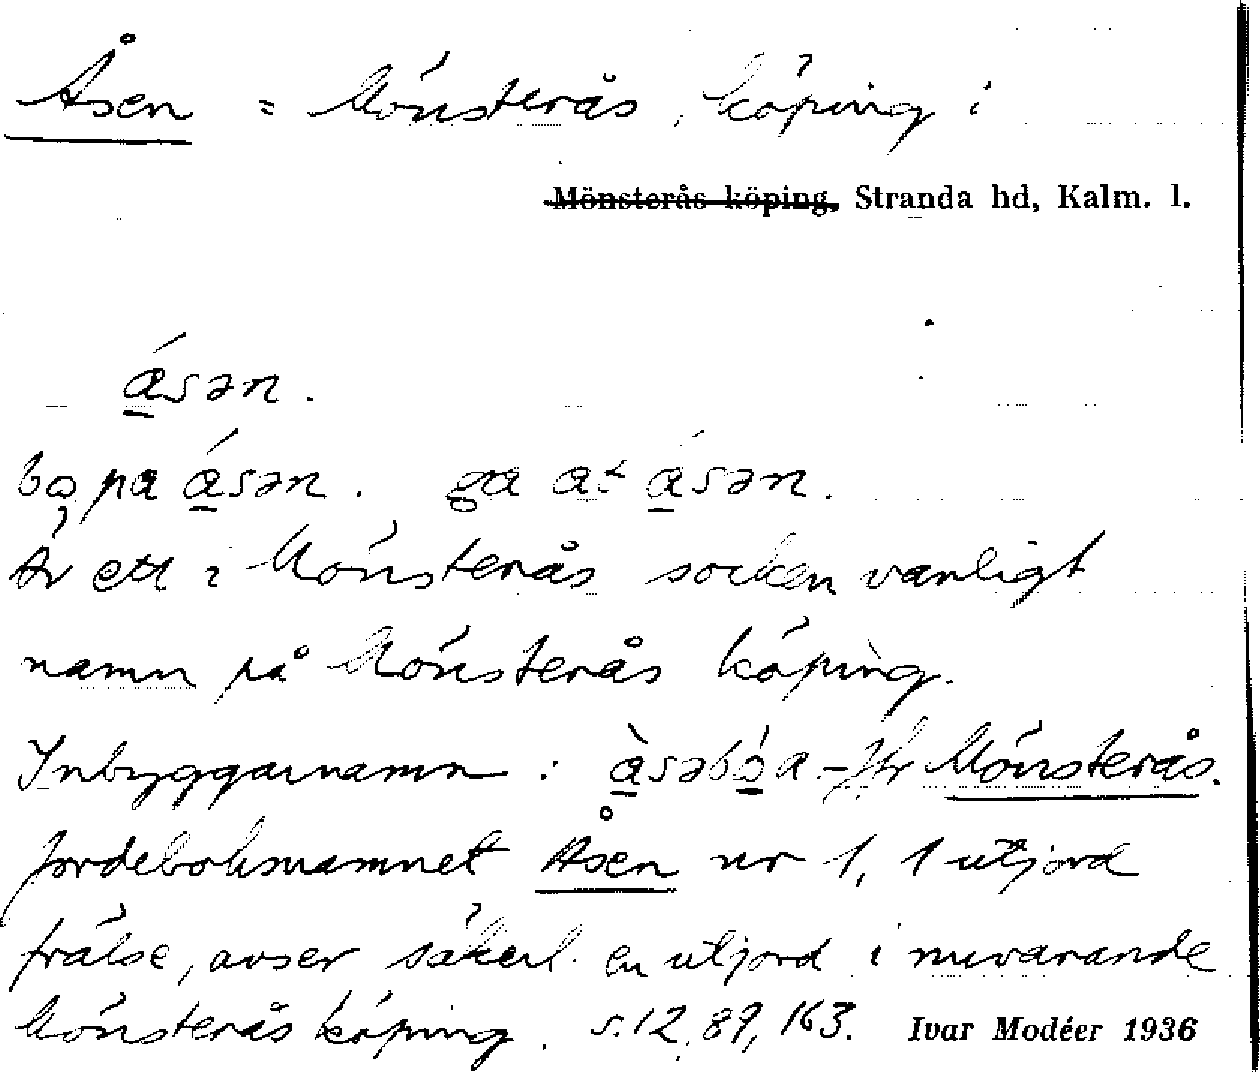 Åsen = Mönsterås, köping i
Mönsterås köping, Stranda hd, Kalm. l.
ásən.
bo pa ásən. ga at ásən.
Är ett i Mönsterås socken vanligt
namn på Mönsterås köping.
Inbyggarnamn: àsəbóa - Jfr Mönsterås.
Jordeboksnamnet Åsen nr 1, 1 utjord
frälse, avser säkerl. en utjord i nuvarande
Mönsterås köping. s. 12, 89, 163. Ivar Modéer 1936